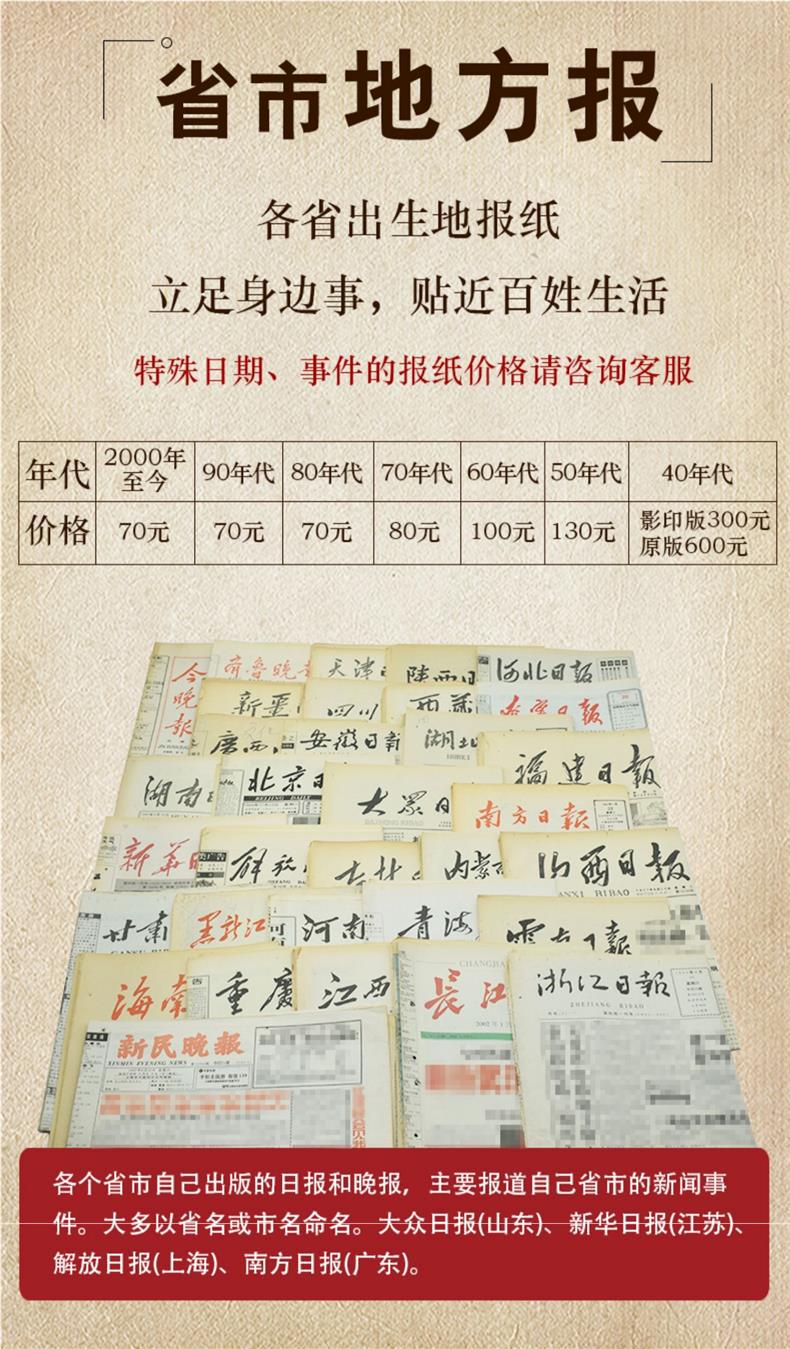 省市地方报
各省出生地报纸
立足身边事，贴近百姓生活
特殊日期、事件的报纸价格请咨询客服
年代 2000年至今 90年代 80年代 70年代 60年代 50年代 40年代
价格 70元 70元 70元 80元 100元 130元 影印版300元 原版600元
今晚報
齐鲁晚
天津
陕西日
河北日報
新疆
四川
西藏
广西
安徽日报
湖北
福建日报
湖南
北京日
BEIJING DAILY
大众日
南方日报
新华日
解放
内蒙
山西日报
SHANXI RIBAO
甘肃
黑龙江
河南
青海
海南
重慶
江西
长江
2002年
浙江日报
ZHEJIANG RIBAO
新民晚报
XINMIN EVENING NEWS
各个省市自己出版的日报和晚报，主要报道自己省市的新闻事
件。大多以省名或市名命名。大众日报(山东)、新华日报(江苏)、
解放日报(上海)、南方日报(广东)。